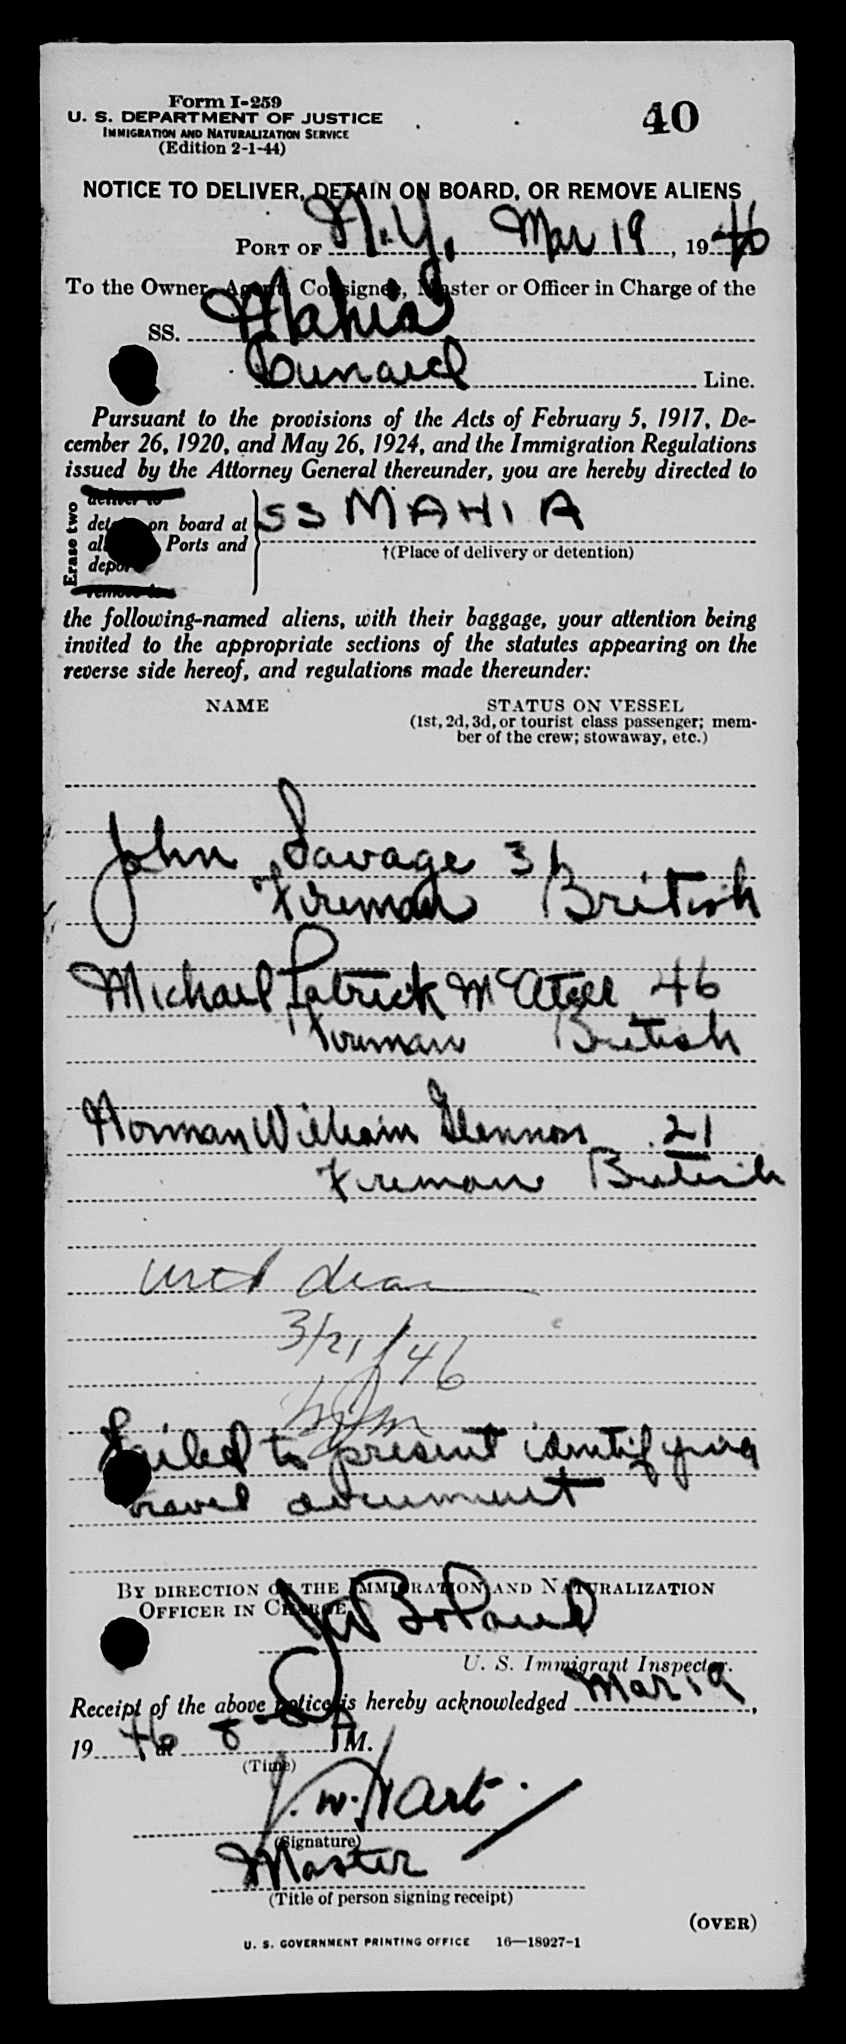 Form I-259
U. S. DEPARTMENT OF JUSTICE
IMMIGRATION AND NATURALIZATION SERVICE
(Edition 2-1-44)
40
NOTICE TO DELIVER, DETAIN ON BOARD, OR REMOVE ALIENS
PORT OF N.Y. Mar 19, 1946
To the Owner, Agent, Consignee, Master or Officer in Charge of the
SS. Mahia
Cunard Line.
Pursuant to the provisions of the Acts of February 5, 1917, De-
cember 26, 1920, and May 26, 1924, and the Immigration Regulations
issued by the Attorney General thereunder, you are hereby directed to
Erase two
deliver to
detain on board at
all Ports and
deport
remove to
SS MAHIA
†(Place of delivery or detention)
the following-named aliens, with their baggage, your attention being
invited to the appropriate sections of the statutes appearing on the
reverse side hereof, and regulations made thereunder:
NAME STATUS ON VESSEL
(1st, 2d, 3d, or tourist class passenger; mem-
ber of the crew; stowaway, etc.)
John Savage 36
Fireman British
Michael Patrick 46
Fireman British
Norman William Glennon 21
Fireman British
3/21/46
Failed to present identifying
travel document
BY DIRECTION OF THE IMMIGRATION AND NATURALIZATION
OFFICER IN CHARGE
Boland
U. S. Immigrant Inspector.
Receipt of the above notice is hereby acknowledged Mar 19,
1946 at 8 M.
(Time)
J. W. Hart.
(Signature)
Master
(Title of person signing receipt)
(OVER)
U. S. GOVERNMENT PRINTING OFFICE 16—18927-1